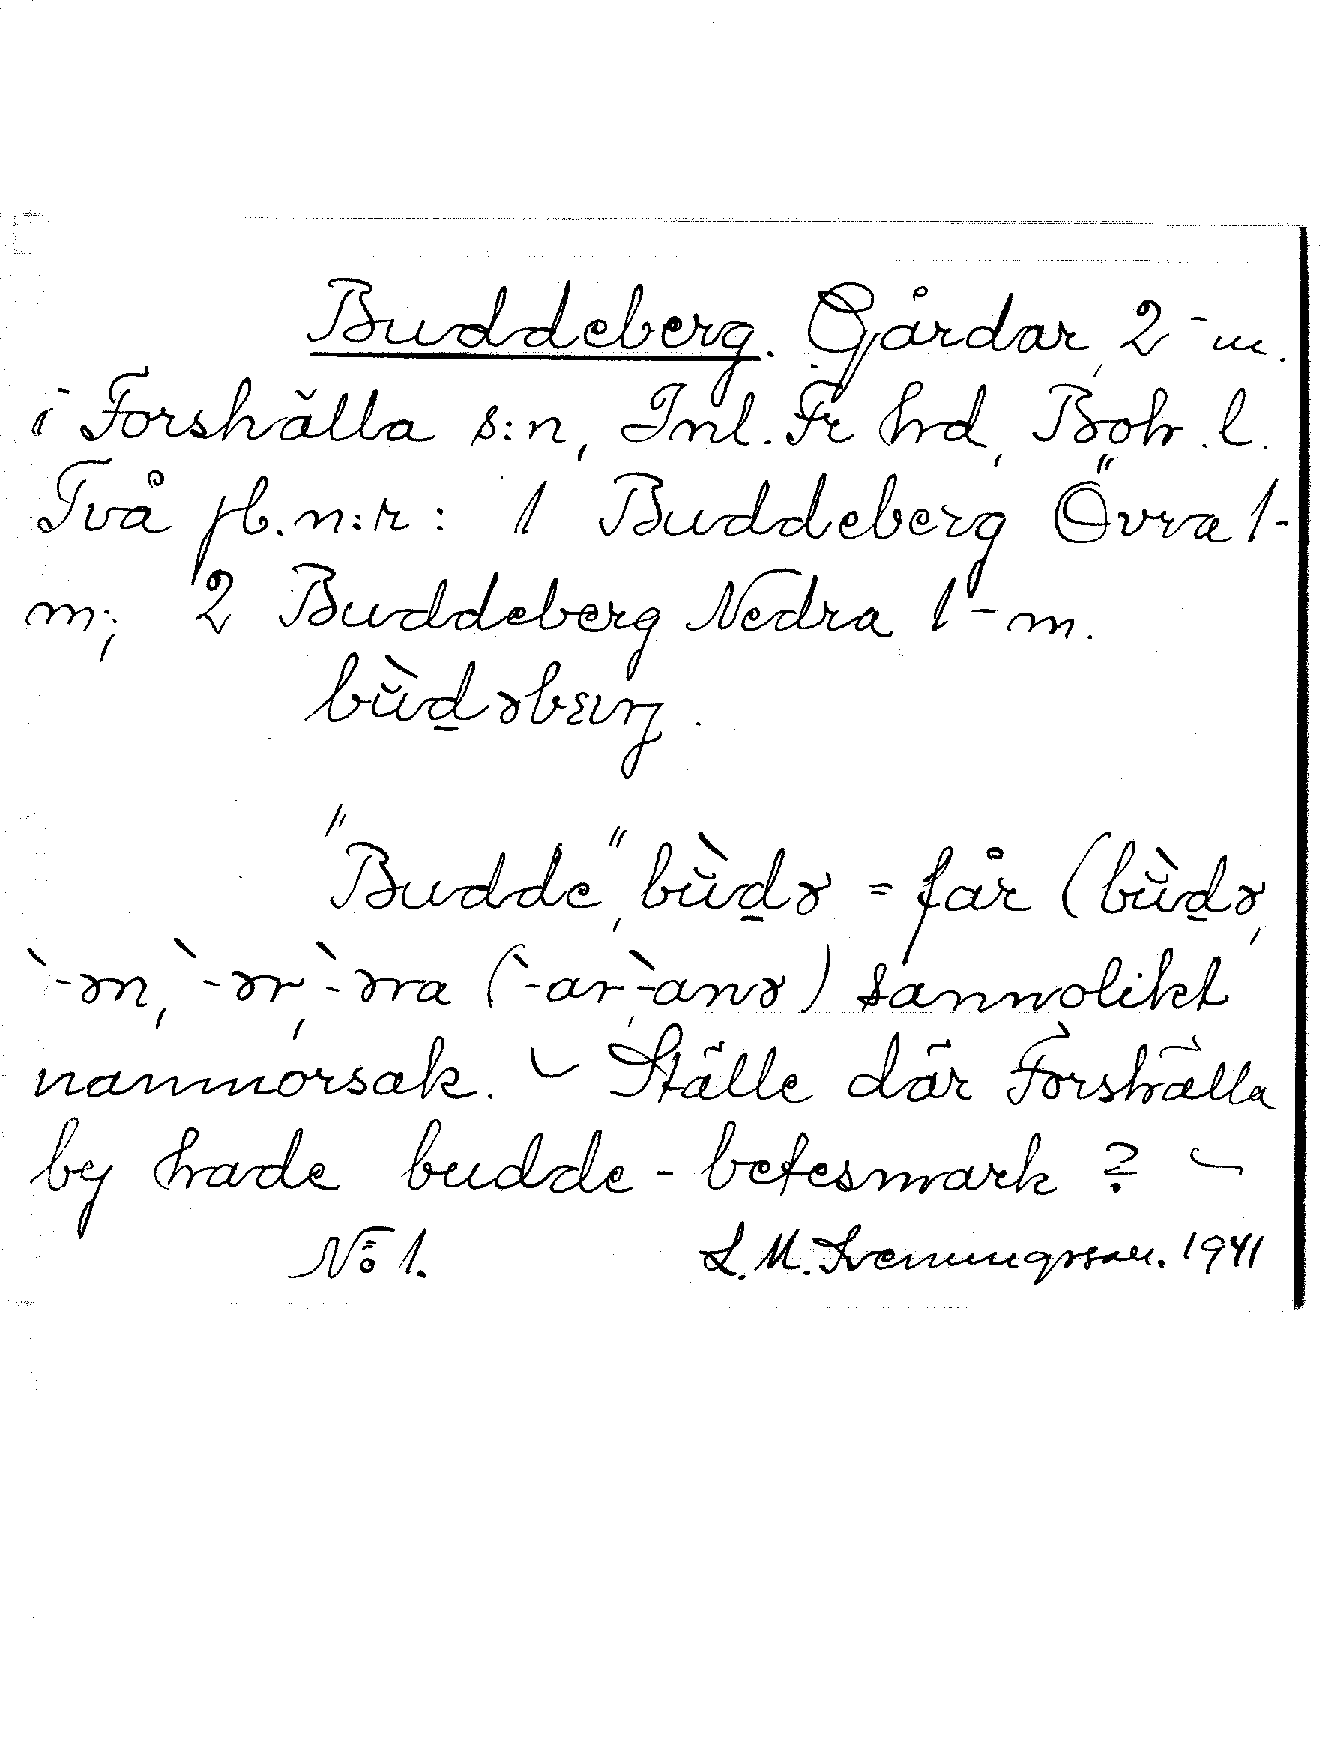 Buddeberg. Gårdar, 2 - m.
i Forshälla s:n, Inl. Fr hd, Boh. l.
Två jb.n:r: 1 Buddeberg Övra 1-
m; 2 Buddeberg Nedra 1 - m.
bùd̲əbærg.
"Budde", bùd̲ə = får (bùd̲ə,
`-ən, `-ər, `-əra (`-ar, `-anə) sannolikt
namnorsak. - Ställe där Forshälla
by hade budde-betesmark? -
No 1. L.M. Sveningsson. 1941